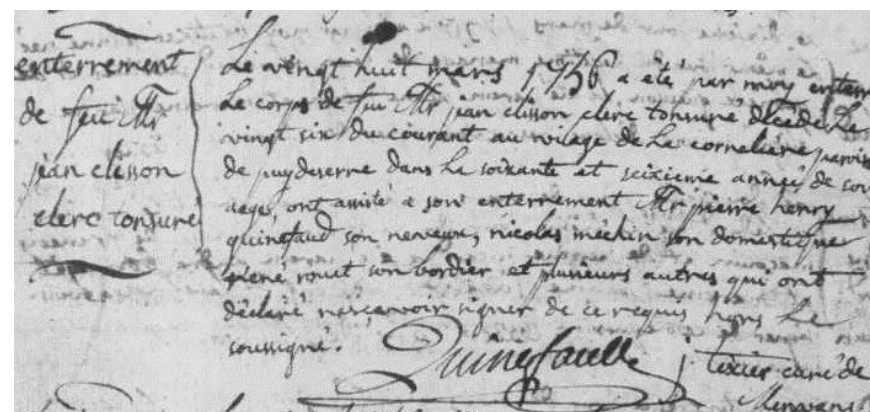 enterrement
de feu Mr
jean clisson
clerc tonsuré
Le vingt huit mars 1756 a été par moy enterr
Le corps de feu Mr jean clisson clerc tonsuré décédé Le
vingt six du courant au vilage de La corneliere paroiss
de puydeserre dans La soixante et seixieme année de son
aage, ont assisté a son enterrement Mr pierre henry
quinefaud son neveux, nicolas mechin son domestique
rené rouet son bordier et plusieurs autres qui ont
déclaré ne sçavoir signer de ce requis hors Le
soussigné.
Quinefaulle
texier curé de